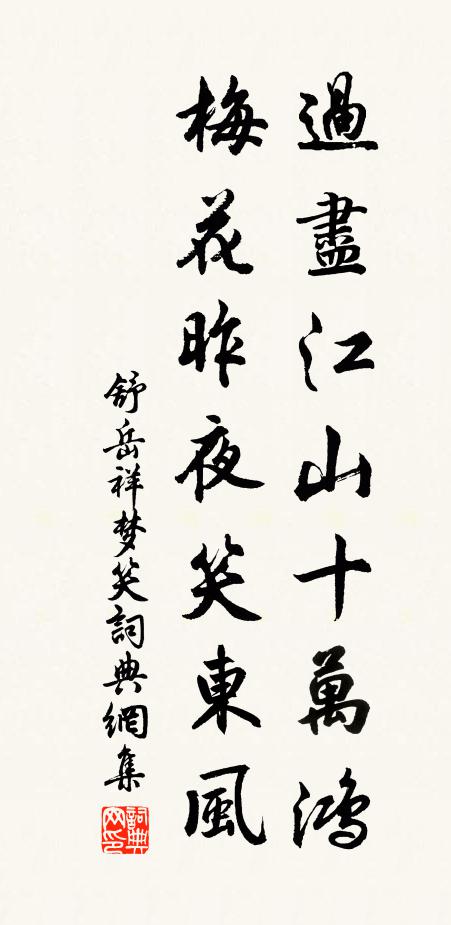 過盡江山十萬鴻
梅花昨夜笑東風
舒岳祥梦笑詞典網集
詞典网印